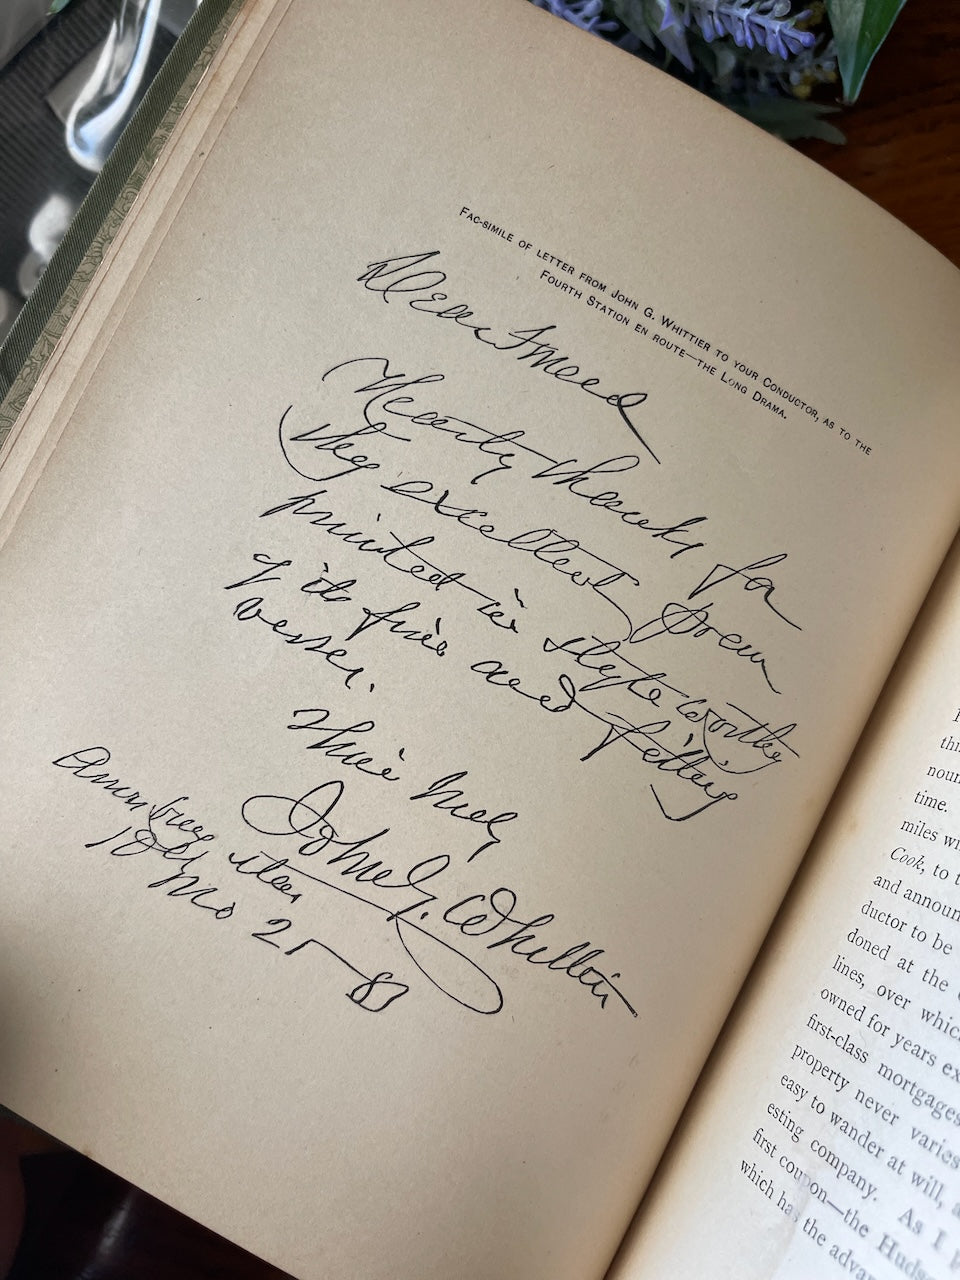 FAC-SIMILE OF LETTER FROM JOHN G. WHITTIER TO YOUR CONDUCTOR, AS TO THE
FOURTH STATION EN ROUTE—THE LONG DRAMA.
Dear Friend
Hearty thanks for
thy excellent poem
printed in style worthy
of its fine and fitting
verses.
Thine truly
John G. Whittier
Amesbury
10th
Mo 25
thi
noun
time.
miles wi
Cook, to t
and announ
ductor to be
doned at the
lines, over whic
owned for years ex
first-class mortgages
property never varies
easy to wander at will, a
esting company. As I
first coupon—the Huds
which has the advan